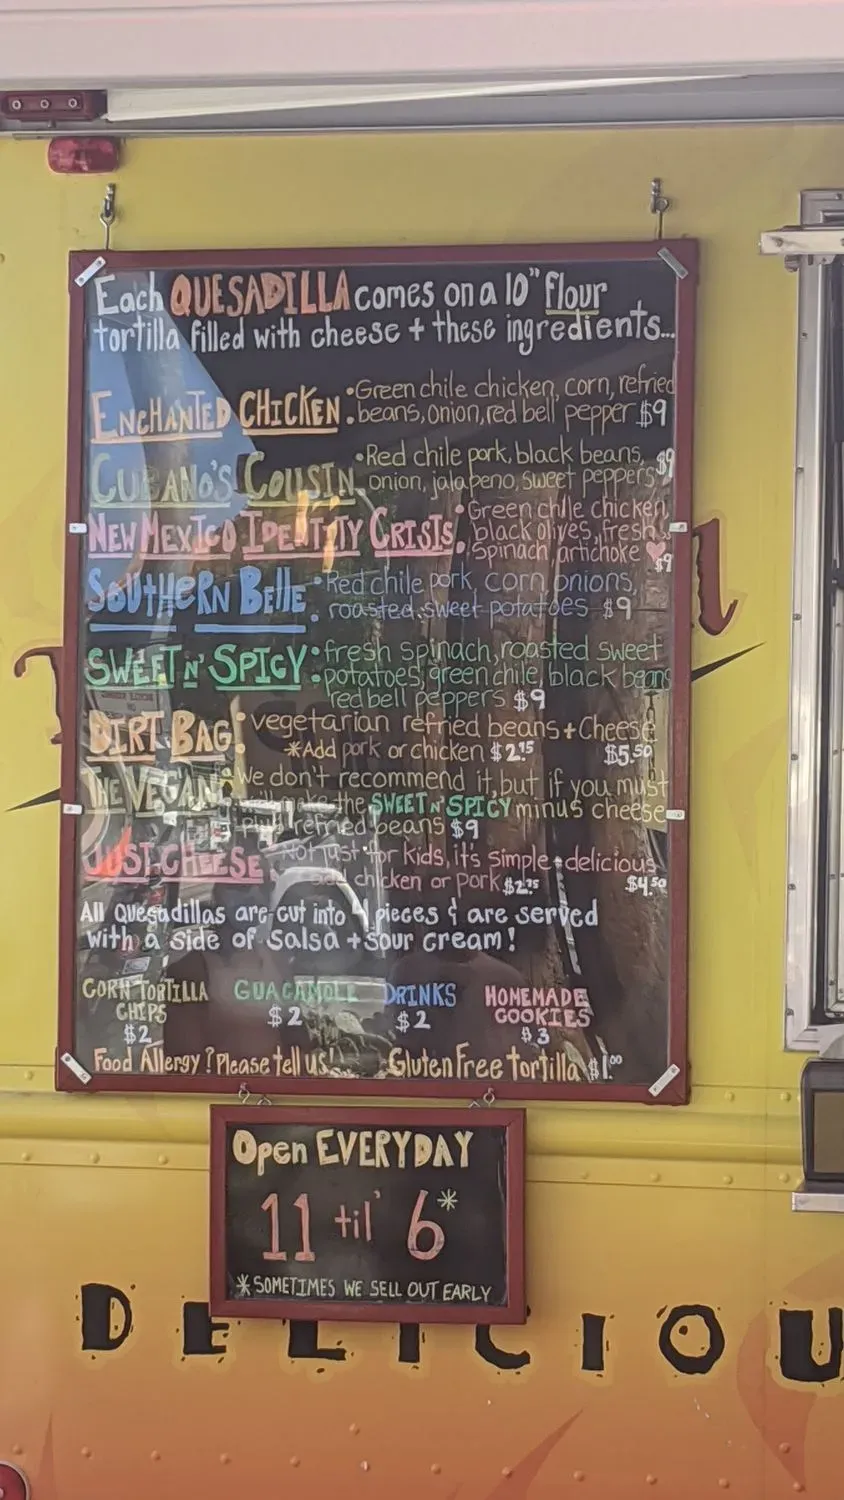 Each QUESADILLA comes on a 10" flour
tortilla filled with cheese + these ingredients...
ENCHANTED CHICKEN: Green chile chicken, corn, refried
beans, onion, red bell pepper $9
CUBANO'S COUSIN: Red chile pork, black beans, $9
onion, jalapeno, sweet peppers
NEW MEXICO IDENTITY CRISIS: Green chile chicken,
black olives, fresh
spinach artichoke $9
SOUTHERN BELLE: Red chile pork, corn, onions,
roasted sweet potatoes $9
SWEET N' SPICY: fresh spinach, roasted sweet
potatoes, green chile, black beans
red bell peppers $9
DIRT BAG: vegetarian refried beans + Cheese
*Add pork or chicken $2.75 $5.50
THE VEGAN: We don't recommend it, but if you must
make the SWEET N' SPICY minus cheese
plus refried beans $9
JUST CHEESE: Not just for kids, it's simple + delicious
add chicken or pork $2.75 $4.50
All Quesadillas are cut into 4 pieces & are served
with a side of salsa + sour cream!
CORN TORTILLA GUACAMOLE DRINKS HOMEMADE
CHIPS $2 $2 COOKIES
$2 $3
Food Allergy? Please tell us! Gluten Free tortilla $1.00
Open EVERYDAY
11 til' 6*
*SOMETIMES WE SELL OUT EARLY
DELICIOU